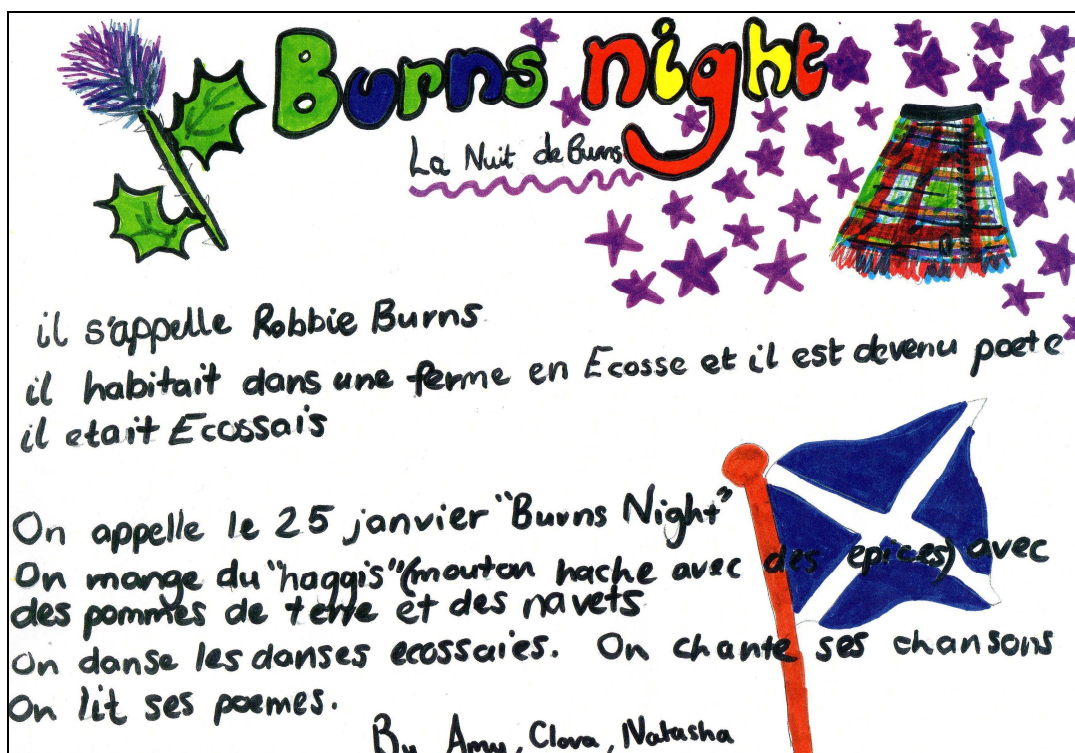 Burns night
La Nuit de Burns
il s'appelle Robbie Burns
il habitait dans une ferme en Ecosse et il est devenu poete
il etait Ecossais
On appelle le 25 janvier "Burns Night"
On mange du "haggis" (mouton hache avec des epices) avec
des pommes de terre et des navets
On danse les danses ecossaies. On chante ses chansons
On lit ses poemes.
By Amy, Clova, Natasha